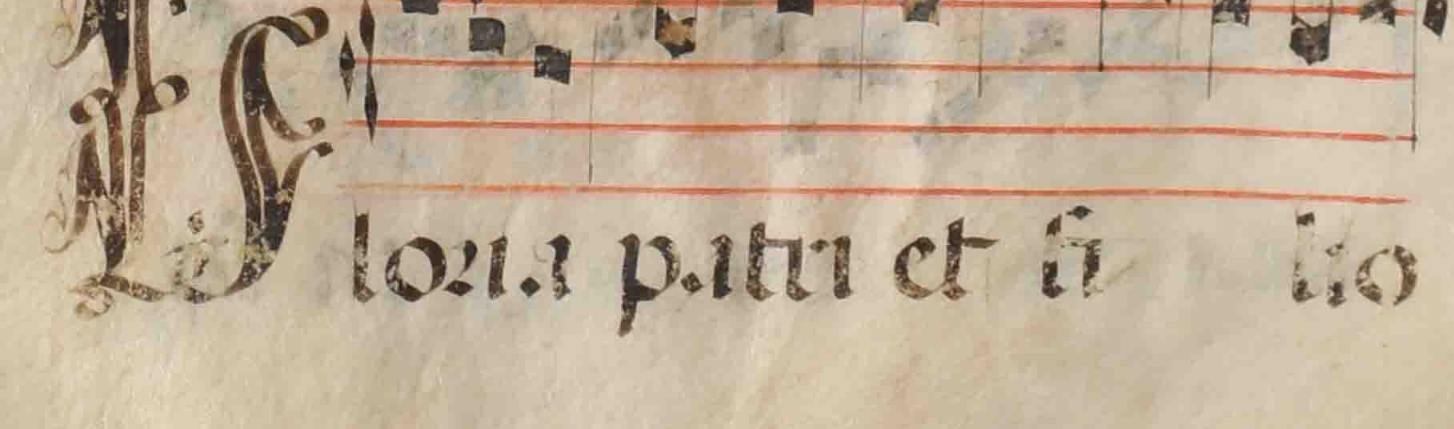 Gloria patri et fi lio